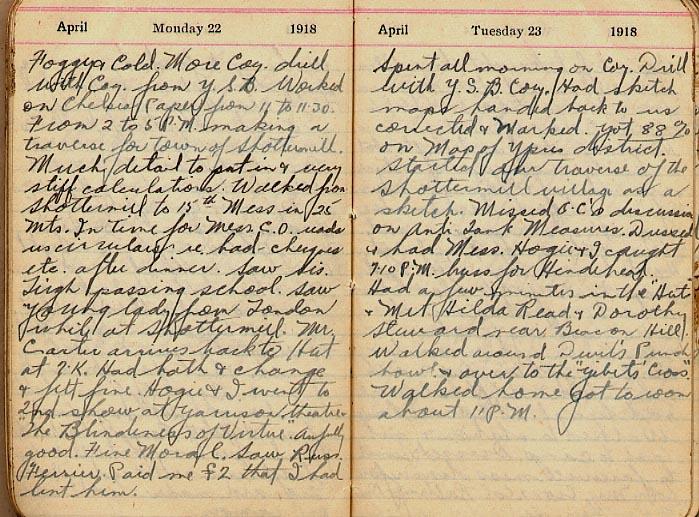 April Monday 22 1918
Foggy & Cold. More Coy. drill
with Coy. from Y.S.B. Worked
on Chelsea Paper from 11 to 11.30.
From 2 to 5 P.M. making a
traverse for town of Shottermill.
Much detail to put in & very
stiff calculations. Walked from
Shottermill to 15th Mess in 25
Mts. In time for Mess. C.O. reads
us circulars re. bad cheques
etc. after dinner. Saw
passing school. Saw
young lady from London
while at Shottermill. Mr.
Carter arrives back to Hut
at 7.K. Had bath & change
& felt fine. Hogie & I went to
2nd show at Garrison theatre
"The Blindeness of Virtue". Awfully
good. Fine Moral. Saw Russ.
Ferrier. Paid me £2 that I had
lent him.
April Tuesday 23 1918
Spent all morning on Coy. Drill
with Y.S.B. Coy. Had sketch
maps handed back to us
corrected & Marked. Got 88%
on Map of Ypres district.
Started our traverse of the
Shottermill village as a
sketch. Missed O.C's discussion
on Anti Tank Measures. Dressed
& had Mess. Hogie & I caught
7.10 P.M. buss for Hindehead.
Had a few minutes in the "Hut"
& Met Hilda Read & Dorothy
Steward near Beacon Hill
Walked around Devil's Punch
bowl & over to the "Gibets Cross"
Walked home got to room
about 11 P.M.